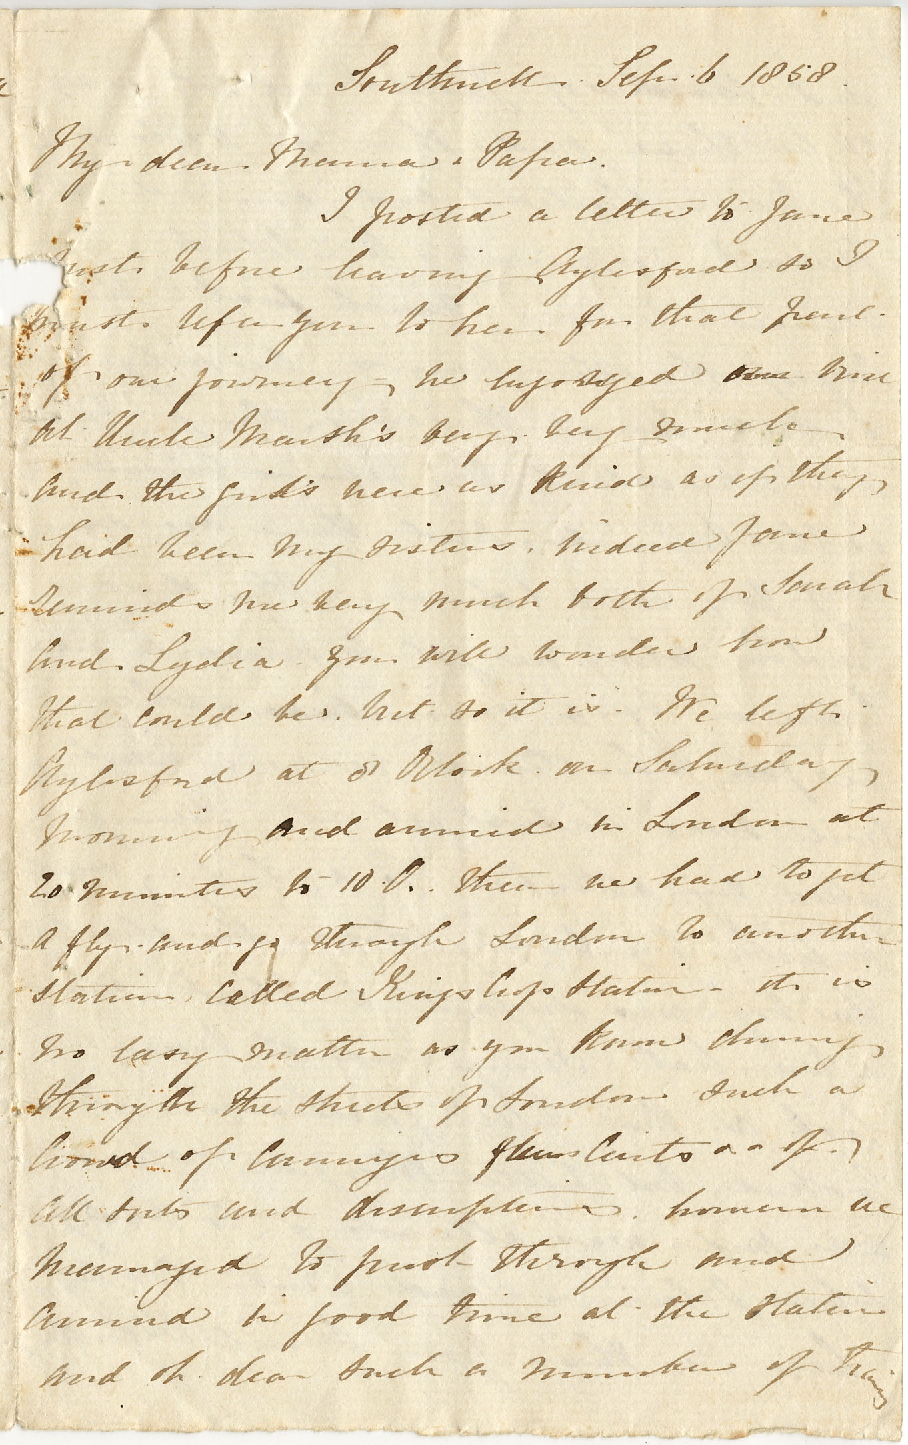 Southwell Sep. 6 1858.
My dear Mama & Papa.
I posted a letter to Jane
just before leaving Aylesford so I
must refer you to her for that part
of our journey - we enjoyed our time
at Uncle Marsh's very very much
and the girls were as kind as if they
had been my sisters. indeed Jane
reminds me very much both of Sarah
and Lydia you will wonder how
that could be. but so it is. We left
Aylesford at 8 Oclock on Saturday
morning and arrived in London at
20 minutes to 10 O. then we had to get
a fly and go through London to another
station called Kings Cross Station - it is
no easy matter as you know driving
through the streets of London such a
crowd of carriages Carts of
all sorts and discription. however we
managed to push through and
arrived in good time at the station
and oh dear such a number of trains